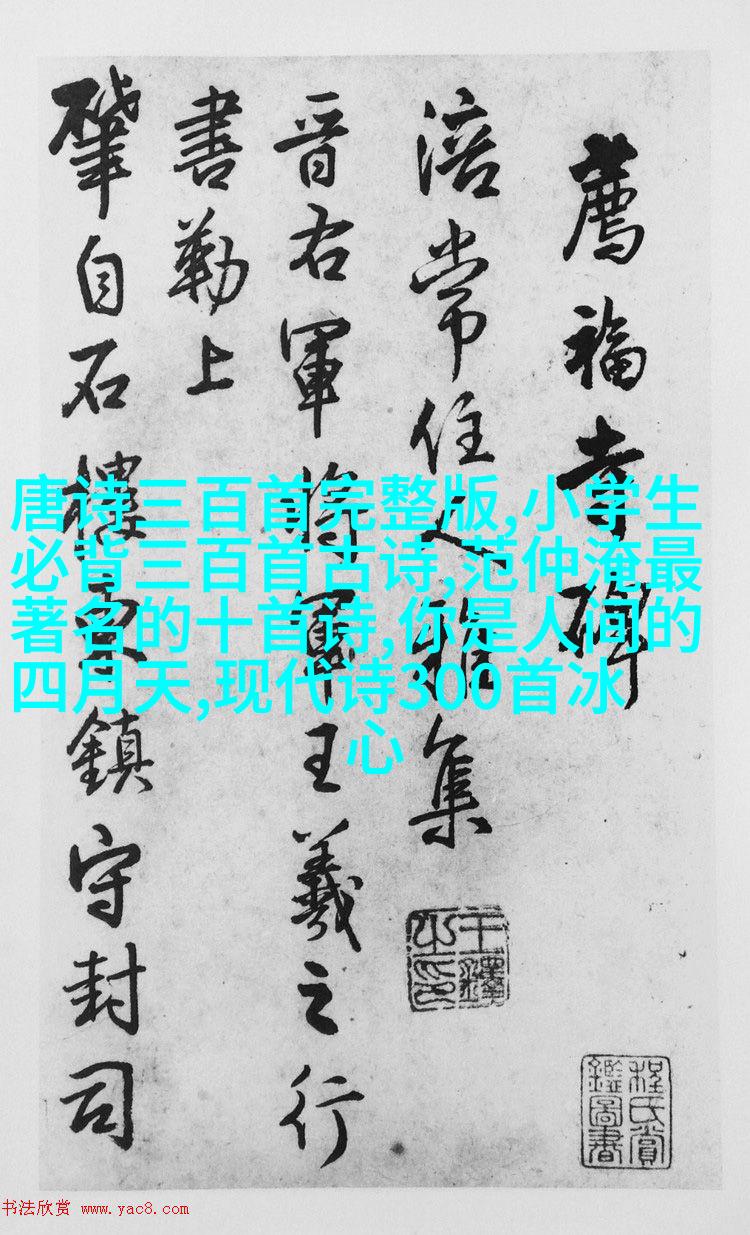 薦福寺碑
涪常住集
晉右軍將軍王羲之行
書勒上
肇自石樓鎮守封司
王鐸之印
程氏賞鑑圖書
唐诗三百首完整版,小学生
必背三百首古诗,范仲淹最
著名的十首诗,你是人间的
四月天,现代诗300首冰
心
书法欣赏 www.yac8.com